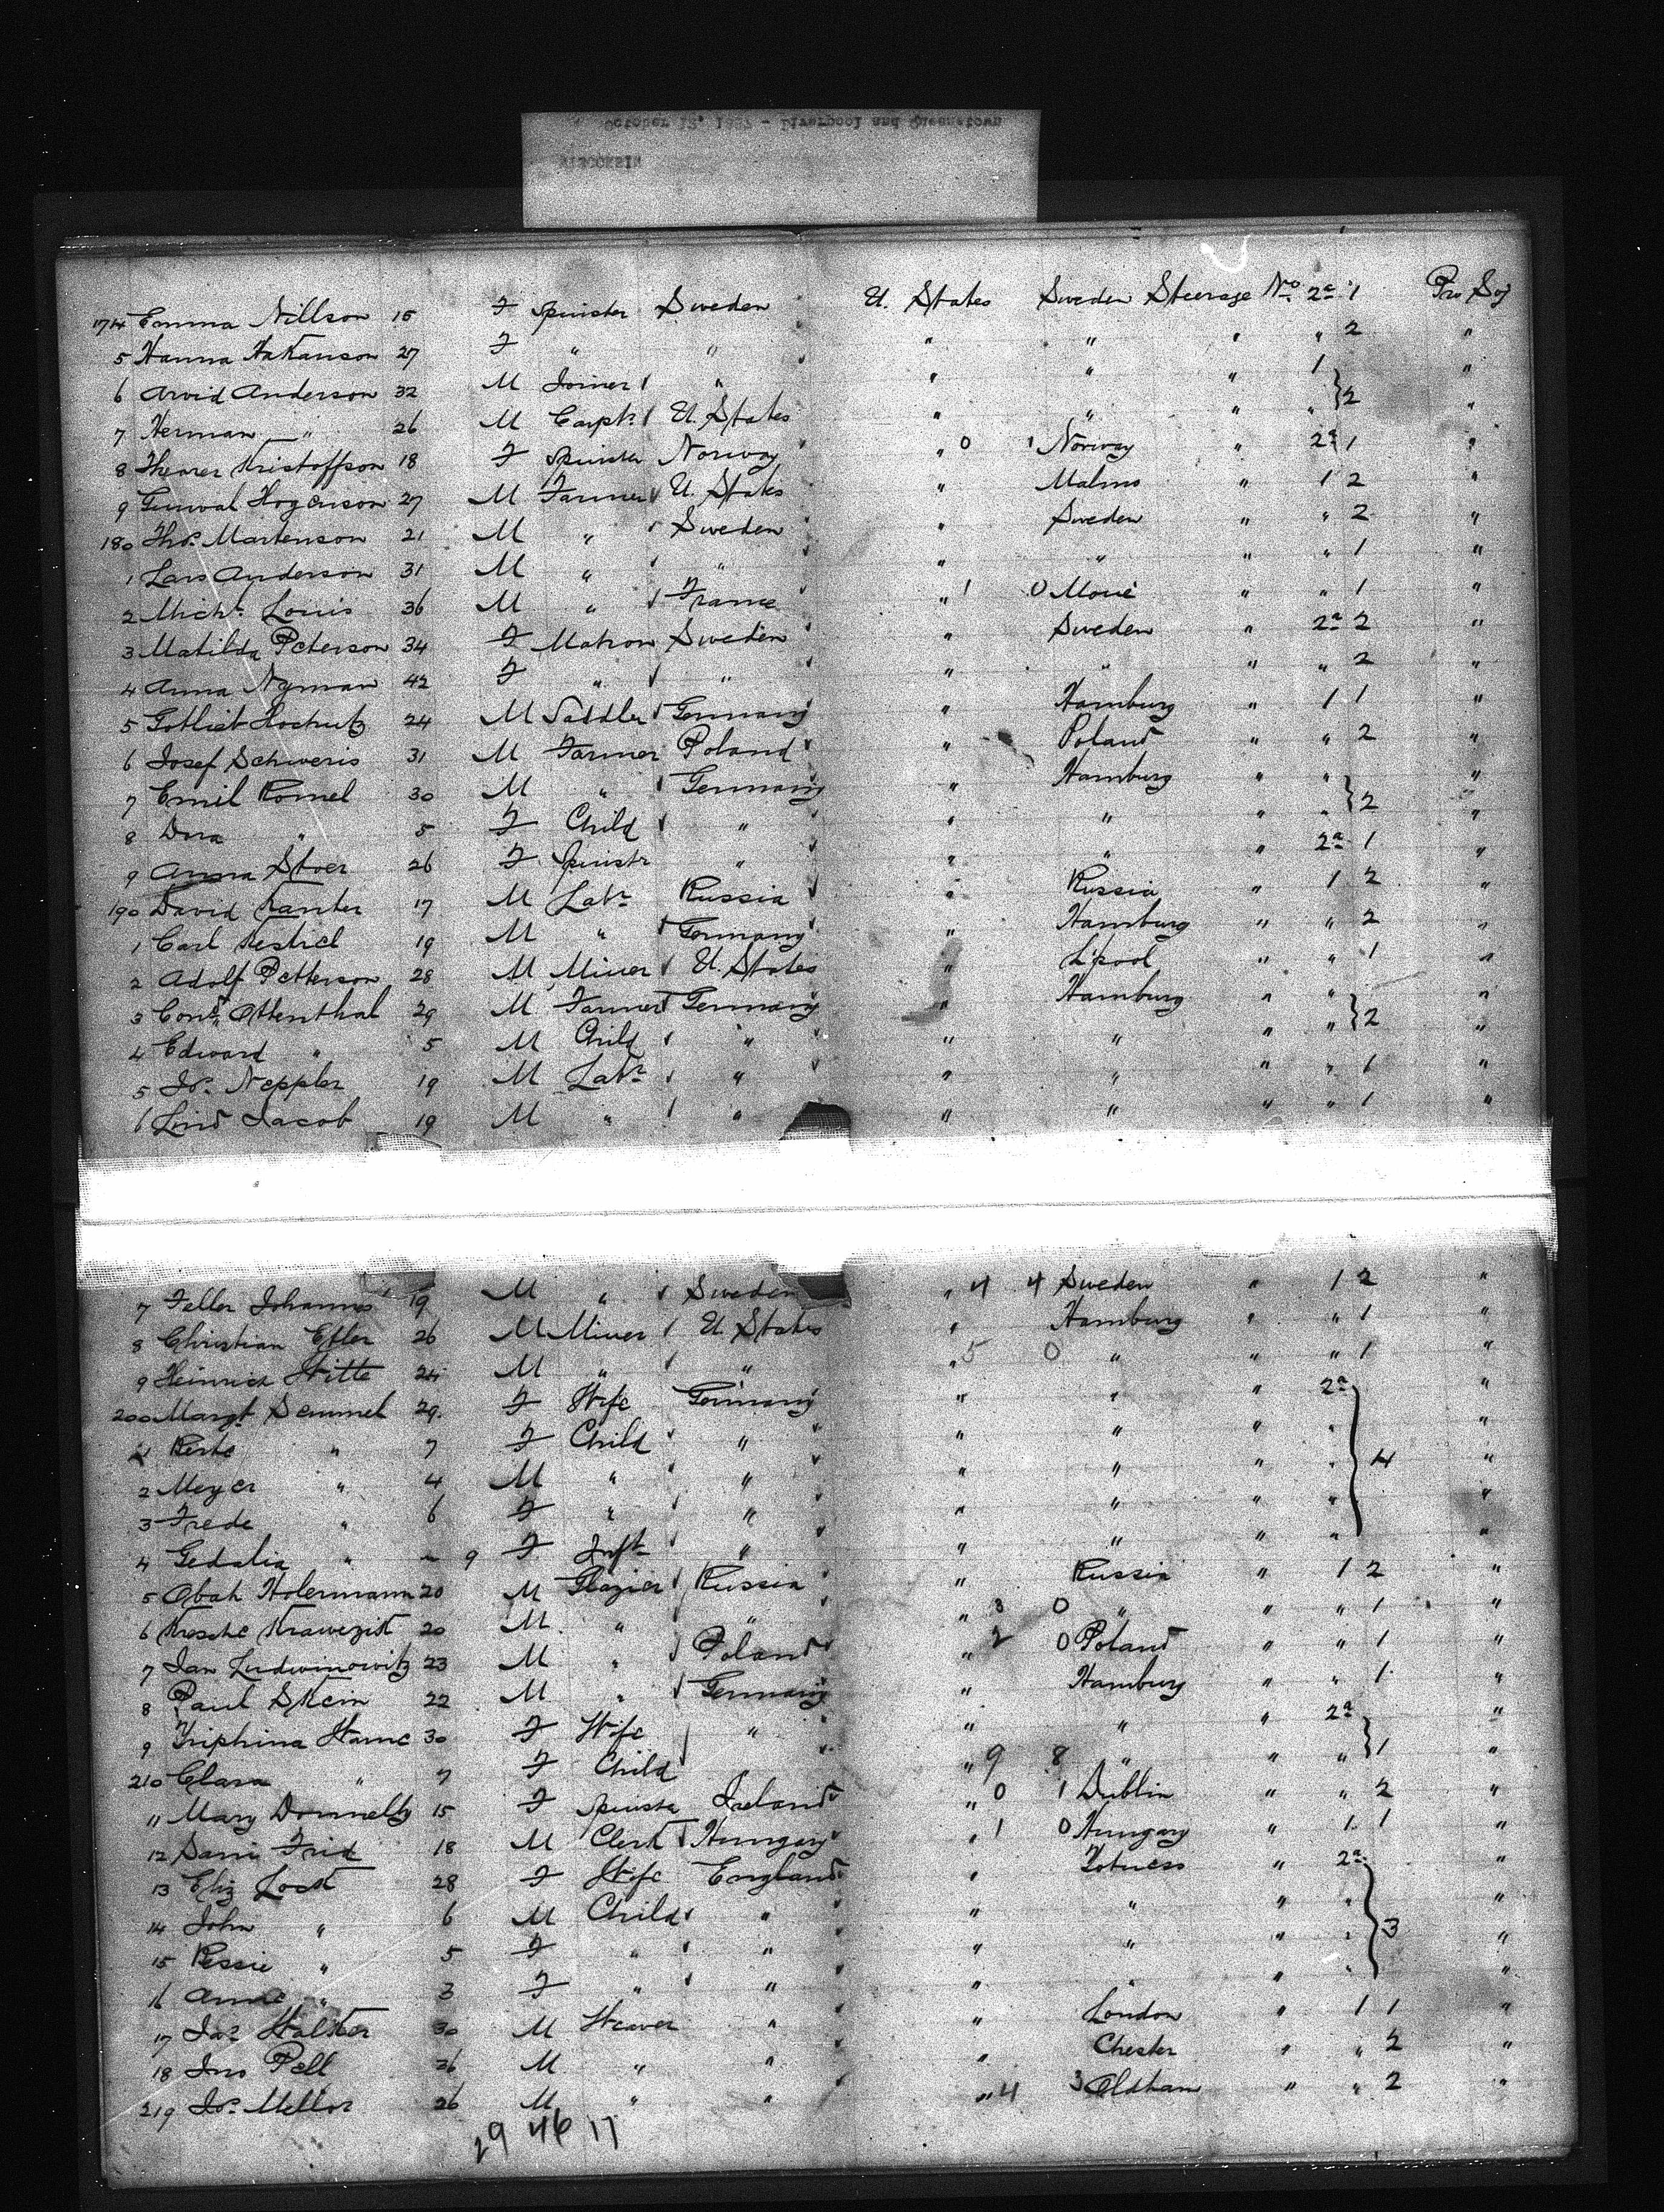 October 12, 1887 - Liverpool and Queenstown
WISCONSIN
174 Emma Nillson 15 F Spinster Sweden U. States Sweden Steerage No. 2a 1 Pro Soj
5 Hanna Hakanson 27 F " " " " " " 2 "
6 Arvid Anderson 32 M Joiner " " " " 1 "
7 Herman " 26 M Carptr U. States " " " " 2 "
8 Kristoffson 18 F Spinster Norway " 0 1 Norway " 2a 1 "
9 Gunval Hogenson 27 M Farmer U. States " Malmo " 1 2 "
180 Thos. Martenson 21 M " Sweden " Sweden " " 2 "
1 Lars Anderson 31 M " " " " " " 1 "
2 Michl. Louis 36 M " France " 1 0 " " 1 "
3 Matilda Peterson 34 F Matron Sweden " Sweden " 2a 2 "
4 Anna Nyman 42 F " " " " " " 2 "
5 Gotlieb 24 M Saddler Germany " Hamburg " 1 1 "
6 Josef Schweris 31 M Farmer Poland " Poland " " 2 "
7 Emil Romel 30 M " Germany " Hamburg " " "
8 Dora " 5 F Child " " " " " 2 "
9 Anna Stoer 26 F Spinstr " " " " 2a 1 "
190 David Kanter 17 M Labr Russia " Russia " 1 2 "
1 Carl 19 M " Germany " Hamburg " " 2 "
2 Adolf Petterson 28 M Miner U. States " L'pool " " 1 "
3 Cond. Ottenthal 29 M Farmer Germany " Hamburg " " "
4 Edward " 5 M Child " " " " " 2 "
5 Js. Neppler 19 M Labr " " " " " 1 "
6 Lind Jacob 19 M " " " " " " 1 "
7 Feller Johannes 19 M " Sweden " 4 4 Sweden " 1 2 "
8 Christian Etler 26 M Miner U. States " Hamburg " " 1 "
9 Heinrich Witte 24 M " " " 5 0 " " " 1 "
200 Margt. Semmel 29 F Wife Germany " " " 2a "
1 " 7 F Child " " " " " "
2 Meyer " 4 M " " " " " " 4 "
3 Frede " 6 F " " " " " " "
4 Gedalia " - 9 F Inft " " " " " "
5 Abah Holermann 20 M Glazier Russia " Russia " 1 2 "
6 20 M " " " 3 0 " " " 1 "
7 Jan Ludwinowitz 23 M " Poland " 2 0 Poland " " 1 "
8 Paul Stein 22 M " Germany " Hamburg " " 1 "
9 30 F Wife " " " " 2a "
210 Clara " 7 F Child " 9 8 " " " 1 "
11 Mary Donnelly 15 F Spinster Ireland " 0 1 Dublin " " 2 "
12 Sami Frid 18 M Clerk Hungary " 1 0 Hungary " 1 1 "
13 Eliz Lock 28 F Wife England " Totness " 2a "
14 John " 6 M Child " " " " " "
15 Bessie " 5 F " " " " " " 3 "
16 Anne " 3 F " " " " " " "
17 Jas. Walker 30 M Weaver " " London " 1 1 "
18 Jno Pell 26 M " " " Chester " " 2 "
219 Js. Mellor 26 M " " " 4 3 Oldham " " 2 "
29 46 17